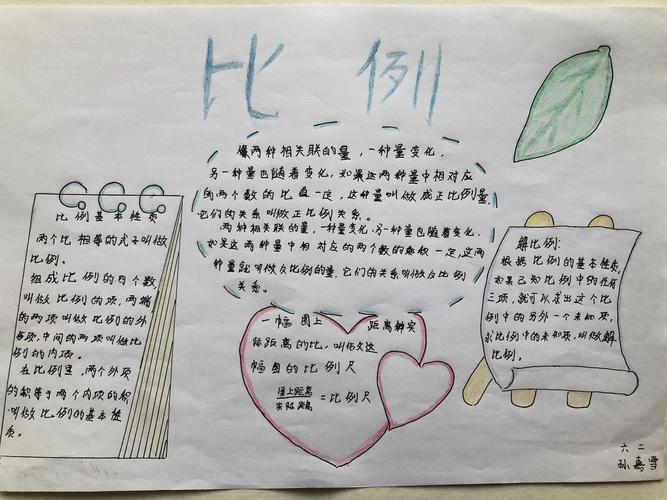 比例
像两种相关联的量，一种量变化，
另一种量也随着变化，如果这两种量中相对应
的两个数的比值一定，这种量叫做成正比例量，
它们的关系叫做正比例关系。
两种相关联的量，一种量变化，另一种量也随着变化，
如果这两种量中相对应的两个数的乘积一定，这两
种量就叫做反比例的量，它们的关系叫做反比例
关系。
比例基本性质
两个比相等的式子叫做
比例。
组成比例的四个数，
叫做比例的项，两端
的两项叫做比例的外
项，中间的两项叫做比
例的内项。
在比例里，两个外项
的积等于两个内项的积
叫做比例的基本性
质。
一幅图上 距离和实
际距离的比，叫做这
幅图的比例尺
图上距离
实际距离
=比例尺
解比例：
根据比例的基本性质，
如果已知比例中的任何
三项，就可以求出这个比
例中的另外一个未知项，
求比例中的未知项，叫做解
比例。
六二
孙嘉雪